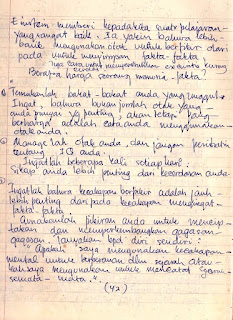 Einstein memberi kepada kita suatu pelajaran
yang sangat baik. Ia yakin bahwa lebih
baik mengunakan otak untuk berfikir dari
pada untuk menyimpan fakta-fakta
Berapa harga seorang manusia - fakta?
Temukanlah bakat-bakat anda yang unggul.
Ingat, bahwa bukan jumlah otak yang
anda punyai yg penting, akan tetapi yang
berharga adalah cara anda menggunakan
otak anda.
Manage lah otak anda, dan jangan peribatin
tentang IQ anda.
Ingatlah beberapa kali setiap hari:
Sikap anda lebih penting dari kecerdasan anda
Ingatlah bahwa kecakapan berfikir adalah jauh
lebih penting daripada kecakapan mengingat
fakta-fakta.
Gunakanlah pikiran anda untuk mencip
takan dan memperkembangkan gagasan-
gagasan. Tanyakan kpd diri sendiri:
"Apakah saya mengunakan kecakapan
mental untuk berperanan dlm sejarah atau-
kah saya mengunakan untuk mencatat sejarah
semata-mata."
(42)